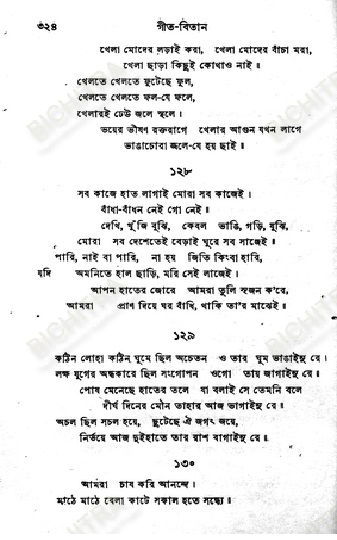 ৩২৪ গীত-বিতান
খেলা মোদের লড়াই করা, খেলা মোদের বাঁচা মরা,
খেলা ছাড়া কিছুই কোথাও নাই।
খেলতে খেলতে ফুটেছে ফুল,
খেলতে খেলতে ফল-যে ফলে,
খেলারই ঢেউ জলে স্থলে।
ভয়ের ভীষণ রক্তরাগে খেলার আগুন যখন লাগে
ভাঙাচোরা জলে-যে হয় ছাই।
১২৮
সব কাজে হাত লাগাই মোরা সব কাজেই।
বাঁধা-বাঁধন নেই গো নেই॥
দেখি, খুঁজি বুঝি, কেবল ভাঙি, গড়ি, বুঝি,
মোরা সব দেশেতেই বেড়াই ঘুরে সব সাজেই।
পারি, নাই বা পারি, না হয় জিতি কিংবা হারি,
যদি অমনিতে হাল ছাড়ি, মরি সেই লাজেই।
আপন হাতের জোরে আমরা তুলি সৃজন ক'রে,
আমরা প্রাণ দিয়ে ঘর বাঁধি, থাকি তা'র মাঝেই।
১২৯
কঠিন লোহা কঠিন ঘুমে ছিল অচেতন ও তার ঘুম ভাঙাইনু রে।
লক্ষ যুগের অন্ধকারে ছিল সংগোপন ওগো তায় জাগাইনু রে।
পোষ মেনেছে হাতের তলে যা বলাই সে তেমনি বলে
দীর্ঘ দিনের মৌন তাহার আজ ভাগাইনু রে।
অচল ছিল সচল হয়ে, ছুটেছে ঐ জগৎ জয়ে,
নির্ভয়ে আজ দুইহাতে তার রাশ বাগাইনু রে॥
১৩০
আমরা চাষ করি আনন্দে।
মাঠে মাঠে বেলা কাটে সকাল হতে সন্ধ্যে।